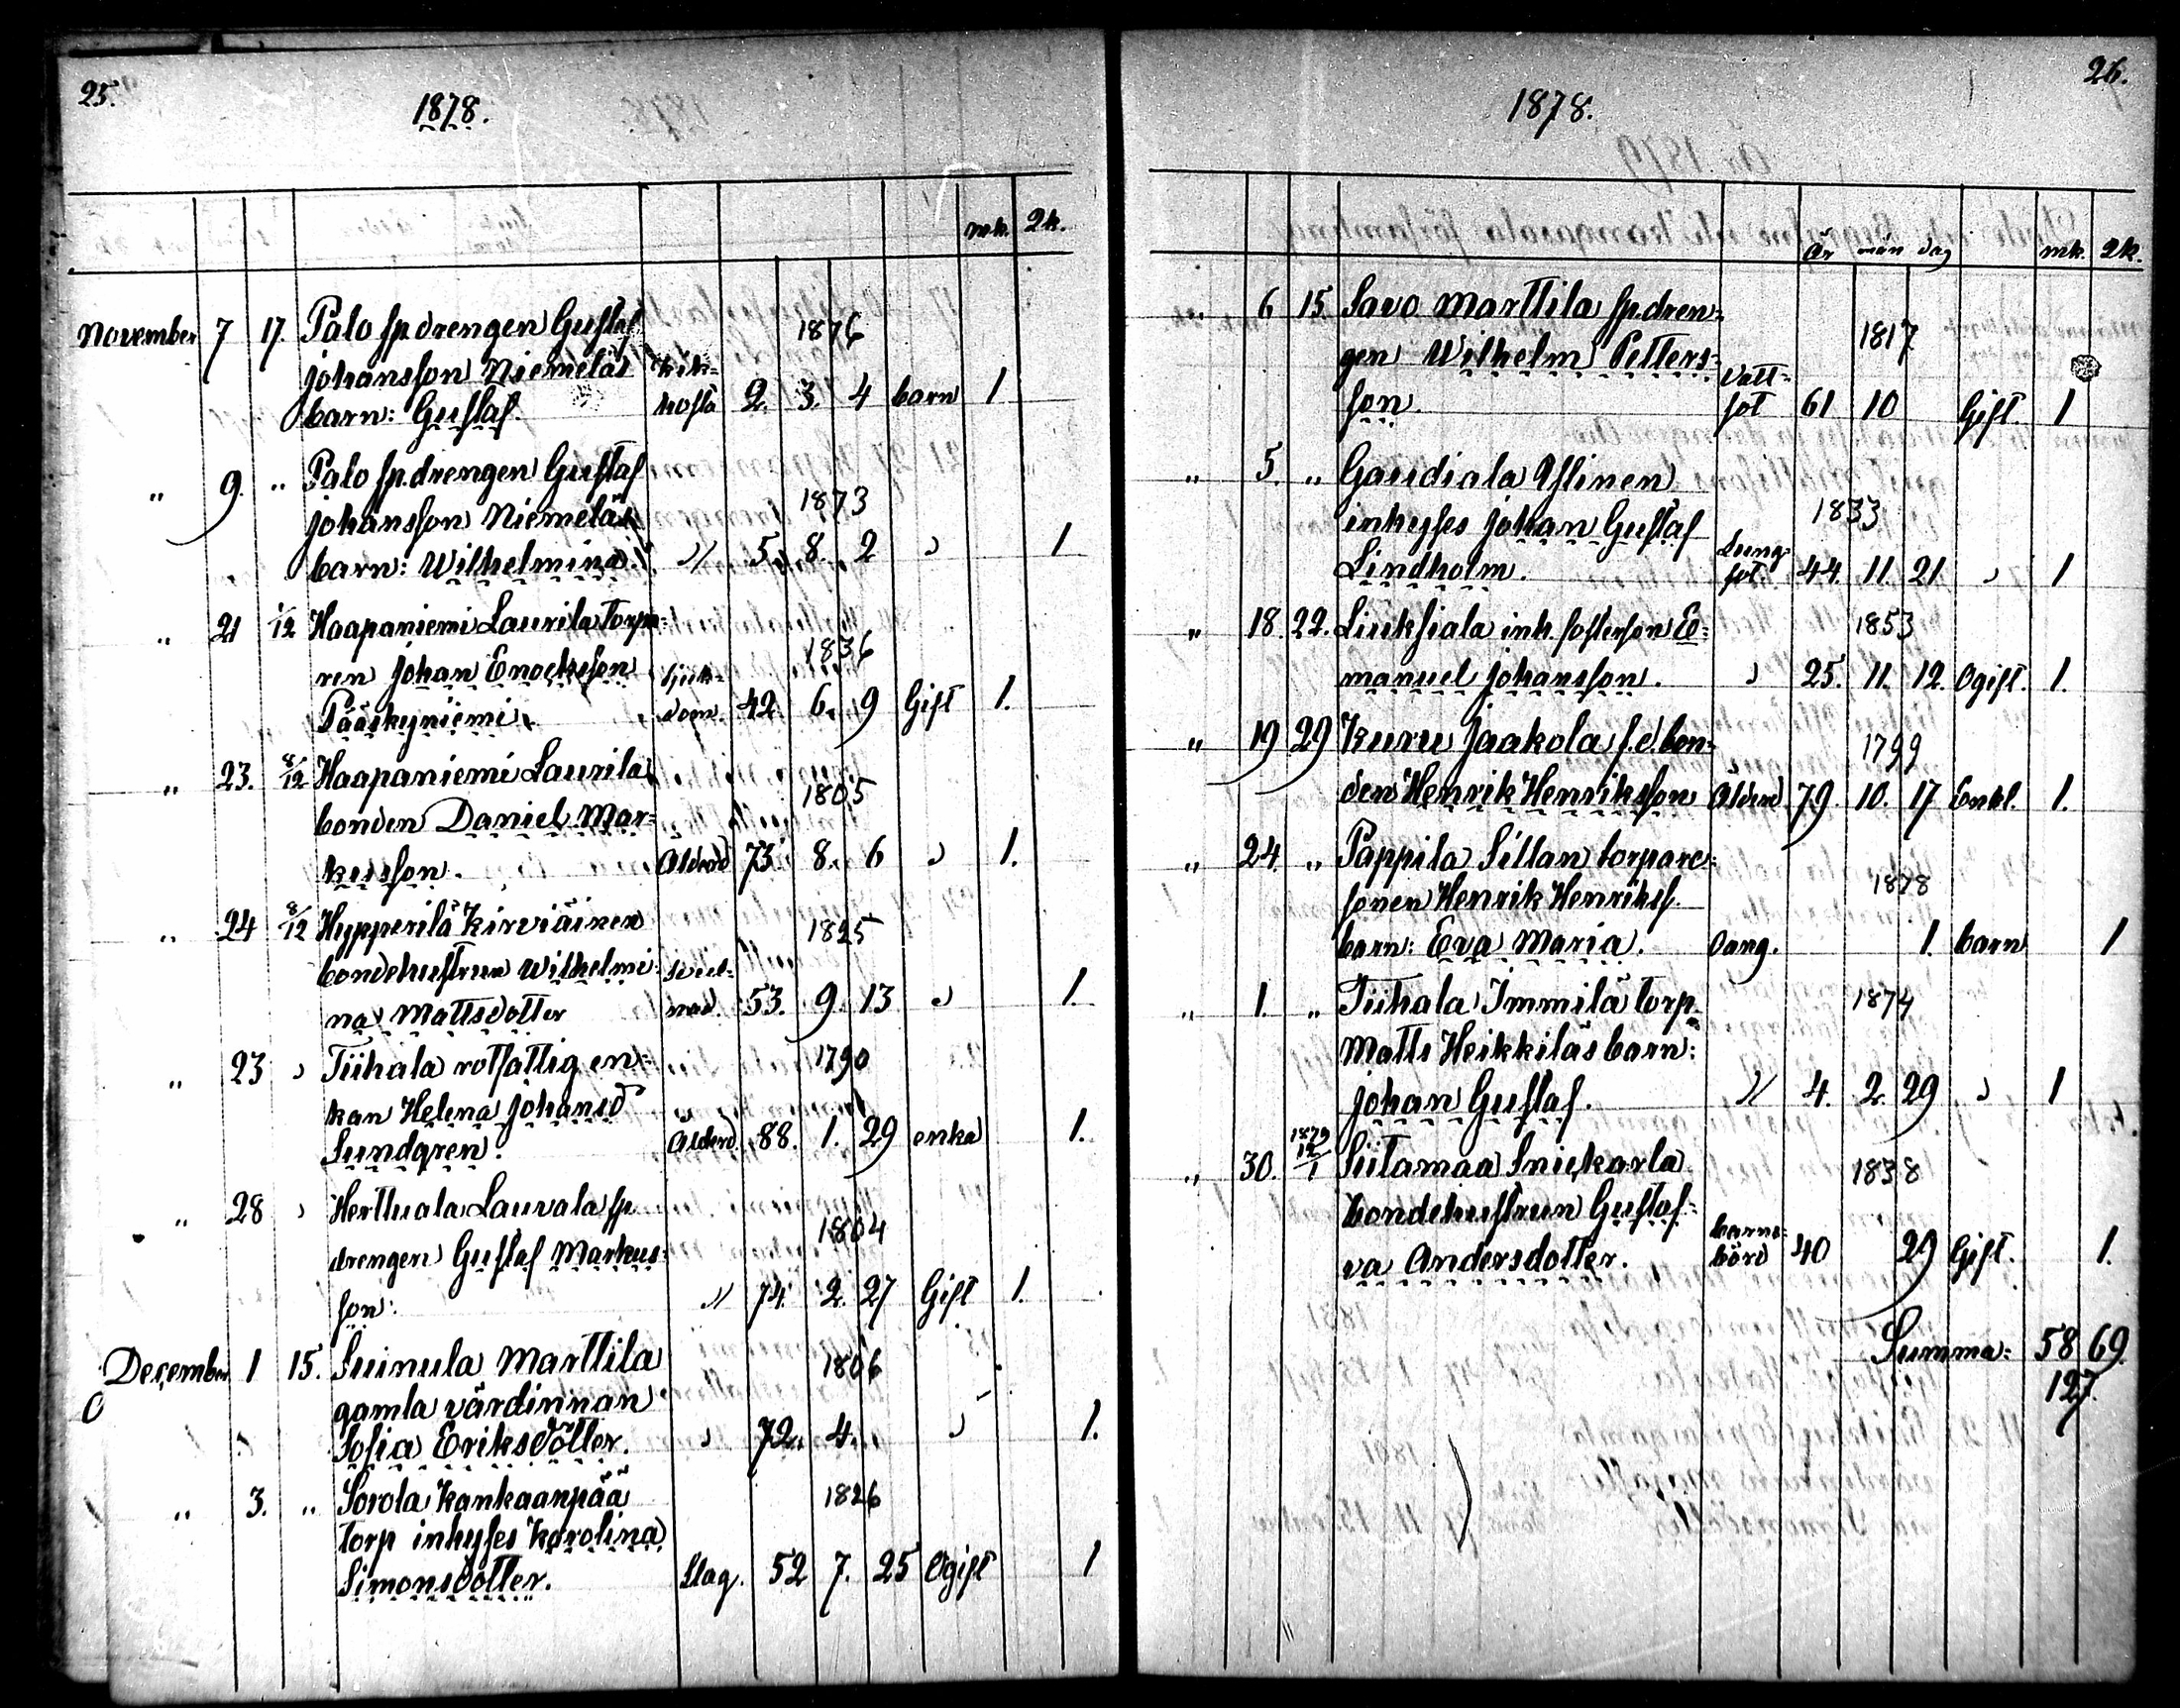 25.
1878.
mk. 2k.
November 7 17. Palo sp. drengen Gustaf 1876
Johansson Niemeläs Kik-
barn: Gustaf. hosta 2. 3. 4 barn 1
„ 9. „ Palo sp. drengen Gustaf
Johansson Niemeläs 1873
barn: Wilhelmina. „ 5. 8. 2 „ 1
„ 21 1/12 Haapaniemi Laurila torpa-
ren Johan Enocksson 1836
Pääskyniemi. Sjuk-
dom. 42. 6. 9 Gift 1.
„ 23. 8/12 Haapaniemi Laurila 1805
bonden Daniel Mar-
kusson. Ålderd 73. 8. 6 „ 1.
„ 24 8/12 Hypperilä Kirviäinen 1825
bondehustrun Wilhelmi-
na Mattsdotter 53. 9. 13 „ 1.
„ 23 „ Tiihala rotfattig en- 1790
kan Helena Johansd
Sundgren. Ålderd. 88. 1. 29 enka 1.
„ 28 „ Herttuala Lauvala sp. 1804
drengen Gustaf Markus-
son. „ 74. 2. 27 Gift 1.
December 1 15. Suinula Marttila 1806
gamla värdinnan
Sofia Eriksdotter. „ 72. 4. „ 1.
„ 3. „ Sorola Kankaanpää 1826
torp inhyses Karolina
Simonsdotter. Slag. 52 7. 25 Ogift 1
26.
1878.
År mån dag mk. 2k.
„ 6 15 Savo Marttila sp. dren-
gen Wilhelm Petters- 1817
son. Vatt-
sot 61 10 Gift. 1
„ 5. „ Gaudiala Aflinen
inhyses Johan Gustaf 1833
Lindholm. Lung-
sot. 44. 11. 21 „ 1
„ 18. 22. Liuksiala inh. fosterson E- 1853
manuel Johansson. „ 25. 11. 12. Ogift. 1.
„ 19 29 Kuru Jaakola f.d. bon- 1799
den Henrik Henriksson Ålderd 79. 10. 17 Enkl. 1.
„ 24. „ Pappila Sillan torpare-
sonen Henrik Henrikss. 1878
barn: Eva Maria. Oang. 1. barn 1
„ 1. „ Tiihala Immilä torp. 1874
Matts Heikkiläs barn:
Johan Gustaf. „ 4. 2. 29 „ 1
„ 30. 1879 12/1 Siitamaa Snickarla 1838
bondehustrun Gustaf-
va Andersdotter. barns-
börd 40 29 Gift. 1.
Summa: 58 69.
127.